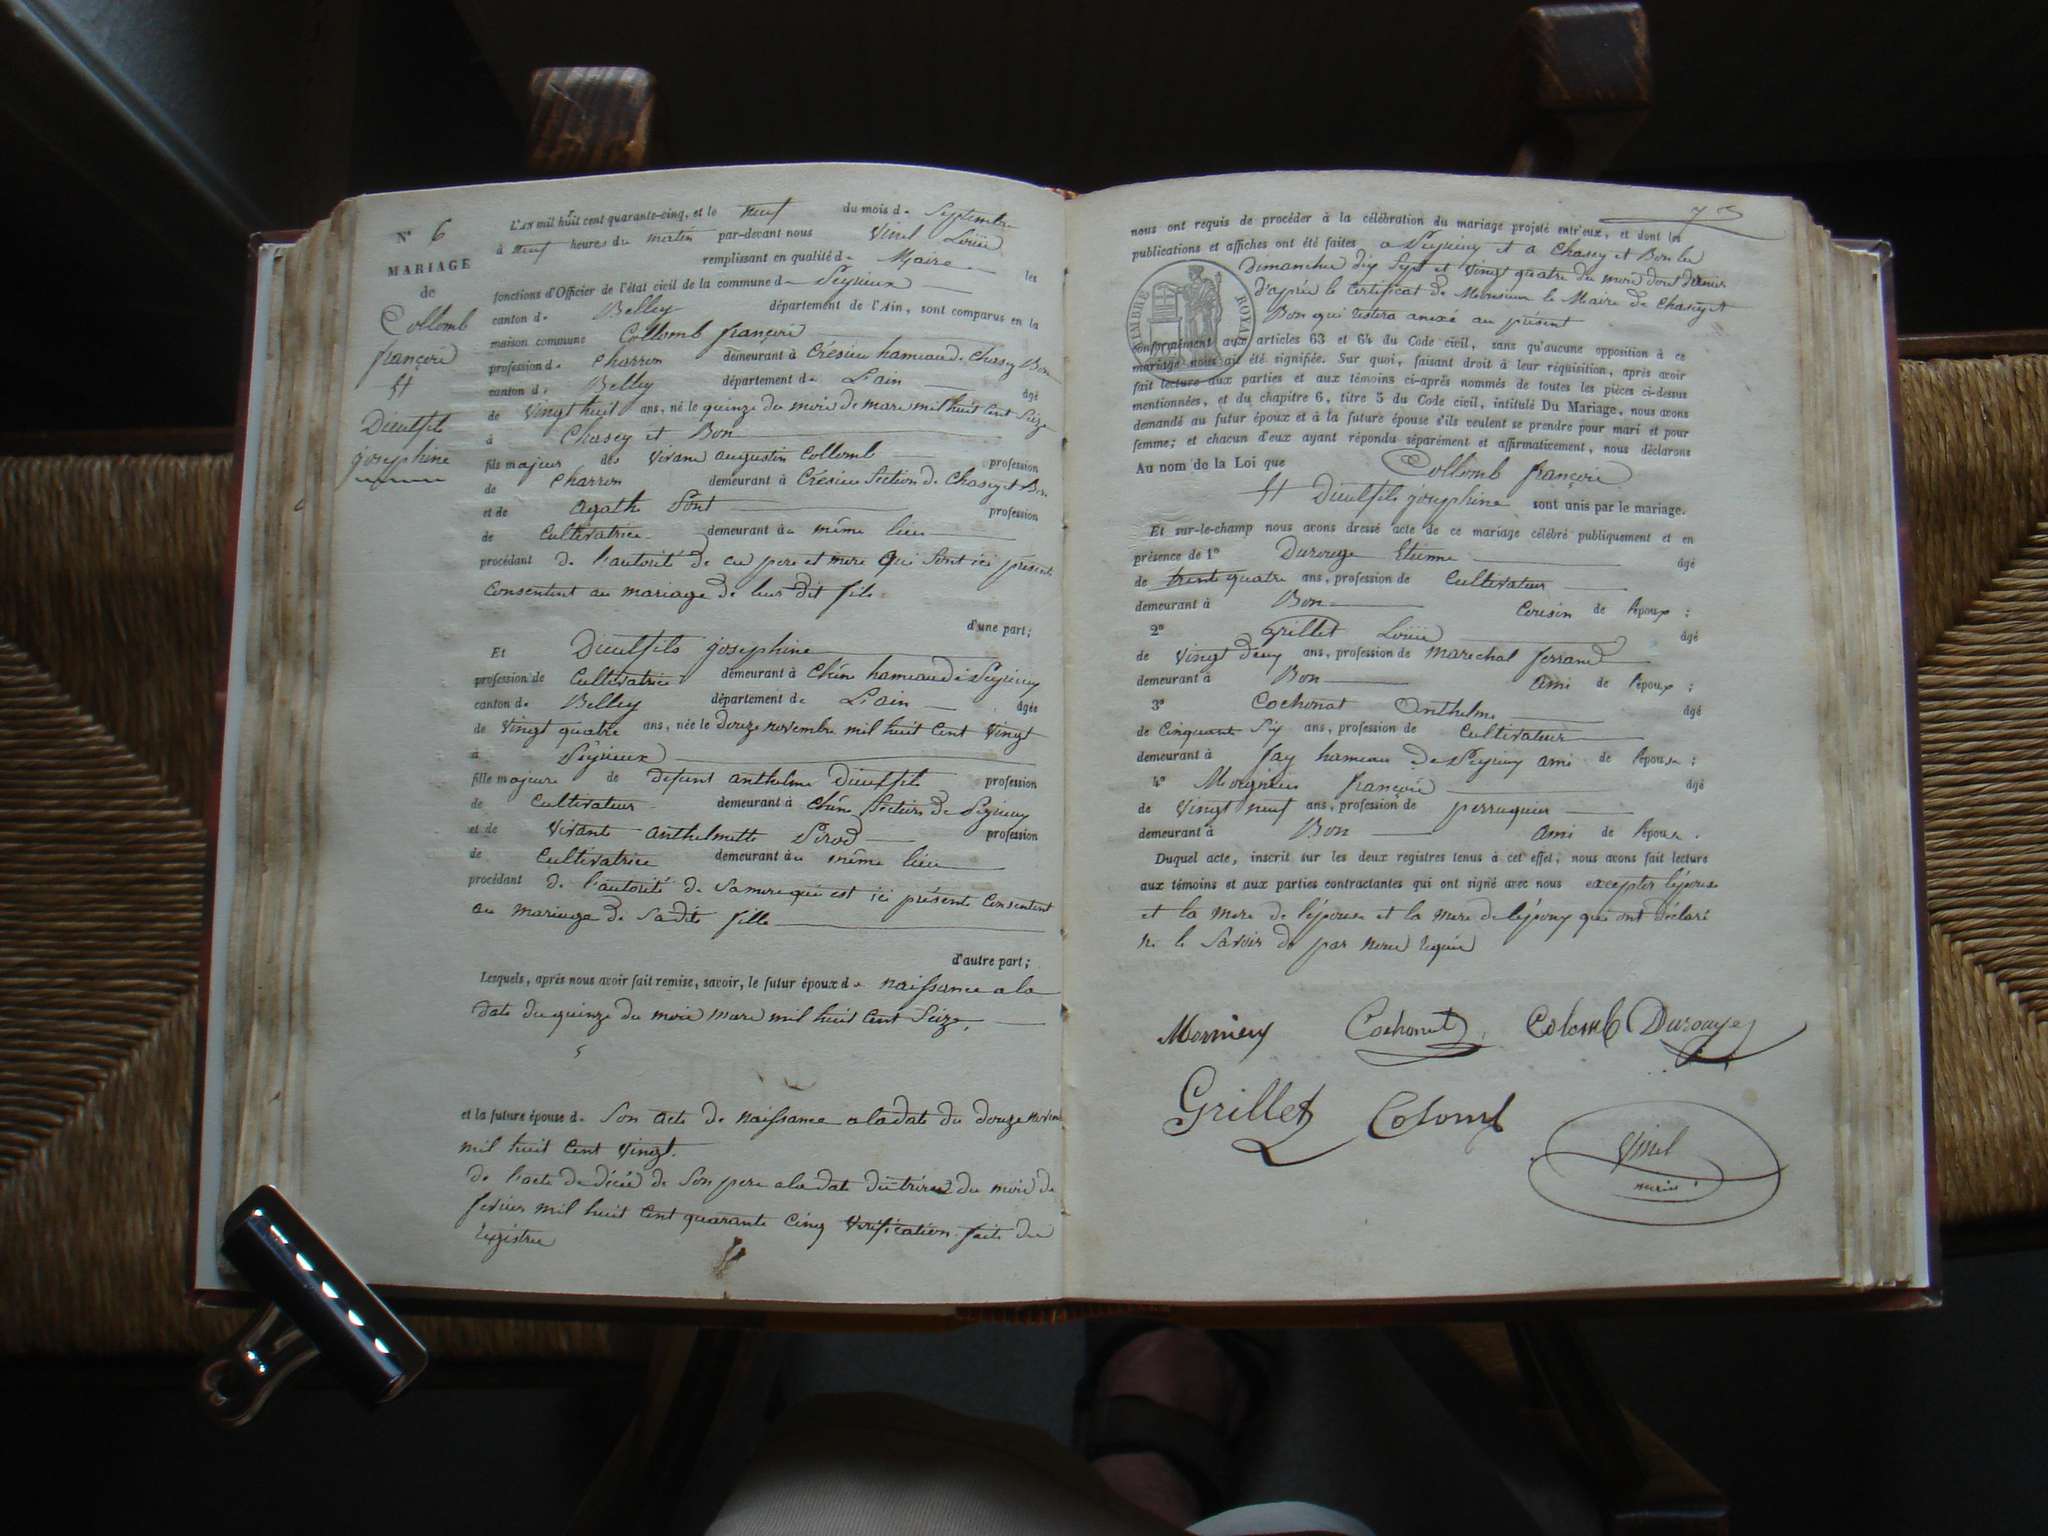 N° 6
MARIAGE
de
Collomb
françois
Et
Dieulfils
josephine
L'AN mil huit cent quarante-cinq, et le neuf du mois de Septembre
à neuf heures du matin par-devant nous Vinel Loüis
remplissant en qualité de Maire les
fonctions d'Officier de l'état civil de la commune de Peyrieux
canton de Belley département de l'Ain, sont comparus en la
maison commune Collomb françois
profession de Charron demeurant à Crésieu hameau de Chasey Bon
canton de Belley département de L'ain âgé
de Vingt huit ans, né le quinze du mois de mars mil huit Cent Seize
à Chasey et Bon
fils majeur des Vivans augustin Collomb profession
de Charron demeurant à Crésieu Section de Chasey et Bon
et de agathe Pont profession
de Cultivatrice demeurant au même lieu
procédant de l'autorité de ces pere et mere qui Sont ici présents
Consentent au mariage de leur dit fils
d'une part;
Et Dieulfils josephine
profession de Cultivatrice demeurant à Chên hameau de Peyrieux
canton de Belley département de L'ain âgée
de Vingt quatre ans, née le douze novembre mil huit Cent Vingt
à Peyrieux
fille majeure de defunt anthelme Dieulfils profession
de Cultivateur demeurant à Chên Section de Peyrieux
et de Vivante anthelmette Pirod profession
de Cultivatrice demeurant au même lieu
procédant de l'autorité de Sa mere qui est ici présente Consentent
au mariage de Sa dite fille
d'autre part;
Lesquels, après nous avoir fait remise, savoir, le futur époux de naissance a la
date du quinze du mois mars mil huit Cent Seize,
et la future épouse de Son acte de naissance a la date du douze novembre
mil huit Cent Vingt.
de l'acte de décés de Son pere a la date du treize du mois de
fevrier mil huit Cent quarante Cinq Verification faite du
registre
73
nous ont requis de procéder à la célébration du mariage projeté entr'eux, et dont les
publications et affiches ont été faites a Peyrieux et a Chasey et Bon les
dimanches dix Sept et Vingt quatre du mois dout dernier
d'après le Certificat de Monsieur le Maire de Chasey et
Bon qui restera anexé au présent
TIMBRE ROYAL
conformément aux articles 63 et 64 du Code civil, sans qu'aucune opposition à ce
mariage nous ait été signifiée. Sur quoi, faisant droit à leur réquisition, après avoir
fait lecture aux parties et aux témoins ci-après nommés de toutes les pièces ci-dessus
mentionnées, et du chapitre 6, titre 5 du Code civil, intitulé Du Mariage, nous avons
demandé au futur époux et à la future épouse s'ils veulent se prendre pour mari et pour
femme; et chacun d'eux ayant répondu séparément et affirmativement, nous déclarons
Au nom de la Loi que Collomb françois
Et Dieulfils josephine sont unis par le mariage.
Et sur-le-champ nous avons dressé acte de ce mariage célébré publiquement et en
présence de 1° Durouge Etienne âgé
de trente quatre ans, profession de Cultivateur
demeurant à Bon Cousin de l'époux;
2° Grillet Loüis âgé
de Vingt deux ans, profession de marechal ferrand
demeurant à Bon ami de l'époux;
3° Cochonat Anthelme âgé
de Cinquante Six ans, profession de Cultivateur
demeurant à fay hameau de Peyrieux ami de l'épouse;
4° françois âgé
de Vingt neuf ans, profession de perruquier
demeurant à Bon ami de l'épouse.
Duquel acte, inscrit sur les deux registres tenus à cet effet, nous avons fait lecture
aux témoins et aux parties contractantes qui ont signé avec nous excepter l'épouse
et la mere de l'épouse et la mere de l'époux qui ont déclaré
ne le Savoir de par nous requis
Cochonat Colomb Durouge
Grillet Colomb
Vinel
maire